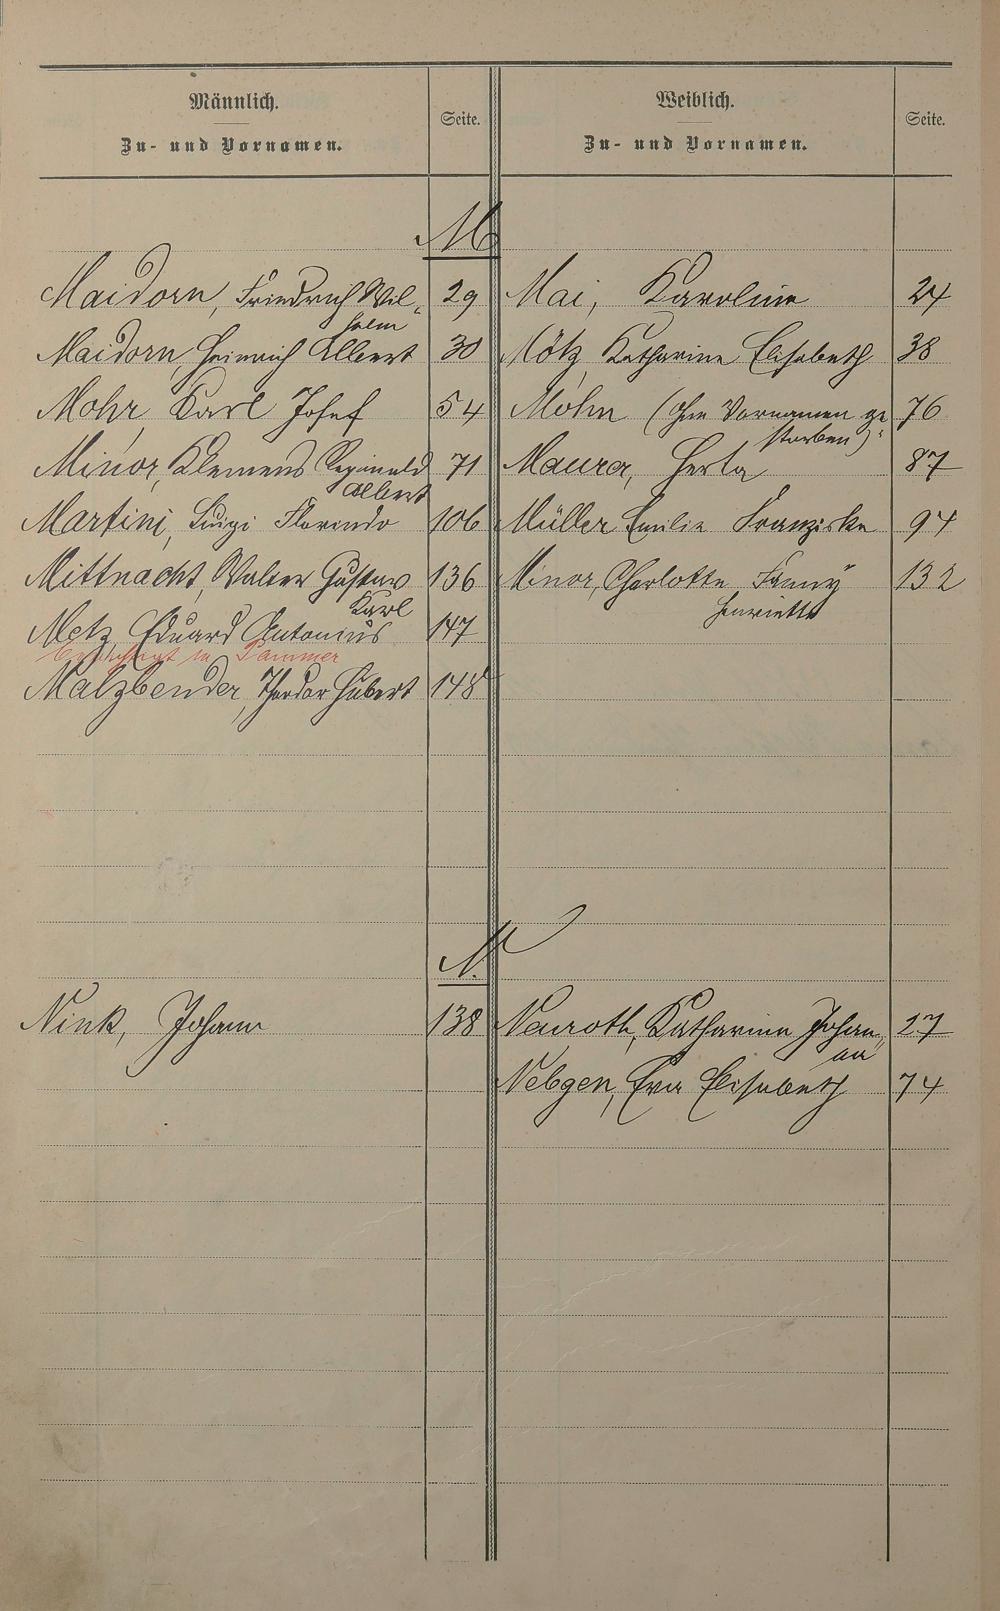 Männlich.
Zu- und Vornamen.
Seite.
Weiblich.
Zu- und Vornamen.
Seite.
M
Maidorn, Friedrich Wil-
helm 29
Mai, Karoline 24
Maidorn, Heinrich Albert 30
Mötz, Katharine Elisabeth 38
Mohr, Karl Josef 54
Mohn (ohne Vornamen ge-
storben) 76
Minor, Klemens Reginald
Albert 71
Maurer, Herta 87
Martini, Luigi Florindo 106
Müller Emilie Franziska 94
Mittnacht, Walter Gustav
Karl 136
Minor, Charlotte Fanny
Henriette 132
Metz, Eduard Antonius 147
berichtigt in Pammer
Malzbender, Theodor Hubert 148
N.
Nink, Johann 138
Neuroth, Katharina Johan-
na 27
Nebgen, Eva Elisabeth 74